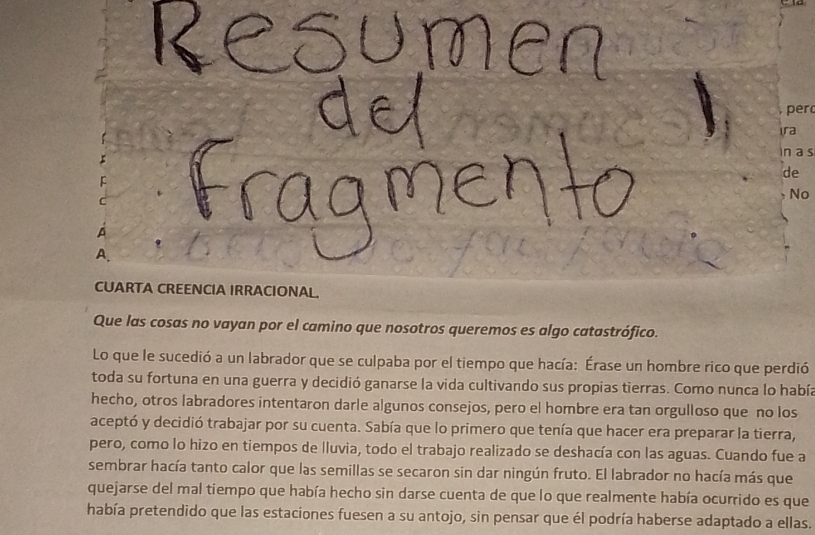 Resumen
del
Fragmento
, perd
ra
n a s
de
, No
A
A.
CUARTA CREENCIA IRRACIONAL.
Que las cosas no vayan por el camino que nosotros queremos es algo catastrófico.
Lo que le sucedió a un labrador que se culpaba por el tiempo que hacía: Érase un hombre rico que perdió
toda su fortuna en una guerra y decidió ganarse la vida cultivando sus propias tierras. Como nunca lo había
hecho, otros labradores intentaron darle algunos consejos, pero el hombre era tan orgulloso que no los
aceptó y decidió trabajar por su cuenta. Sabía que lo primero que tenía que hacer era preparar la tierra,
pero, como lo hizo en tiempos de lluvia, todo el trabajo realizado se deshacía con las aguas. Cuando fue a
sembrar hacía tanto calor que las semillas se secaron sin dar ningún fruto. El labrador no hacía más que
quejarse del mal tiempo que había hecho sin darse cuenta de que lo que realmente había ocurrido es que
había pretendido que las estaciones fuesen a su antojo, sin pensar que él podría haberse adaptado a ellas.